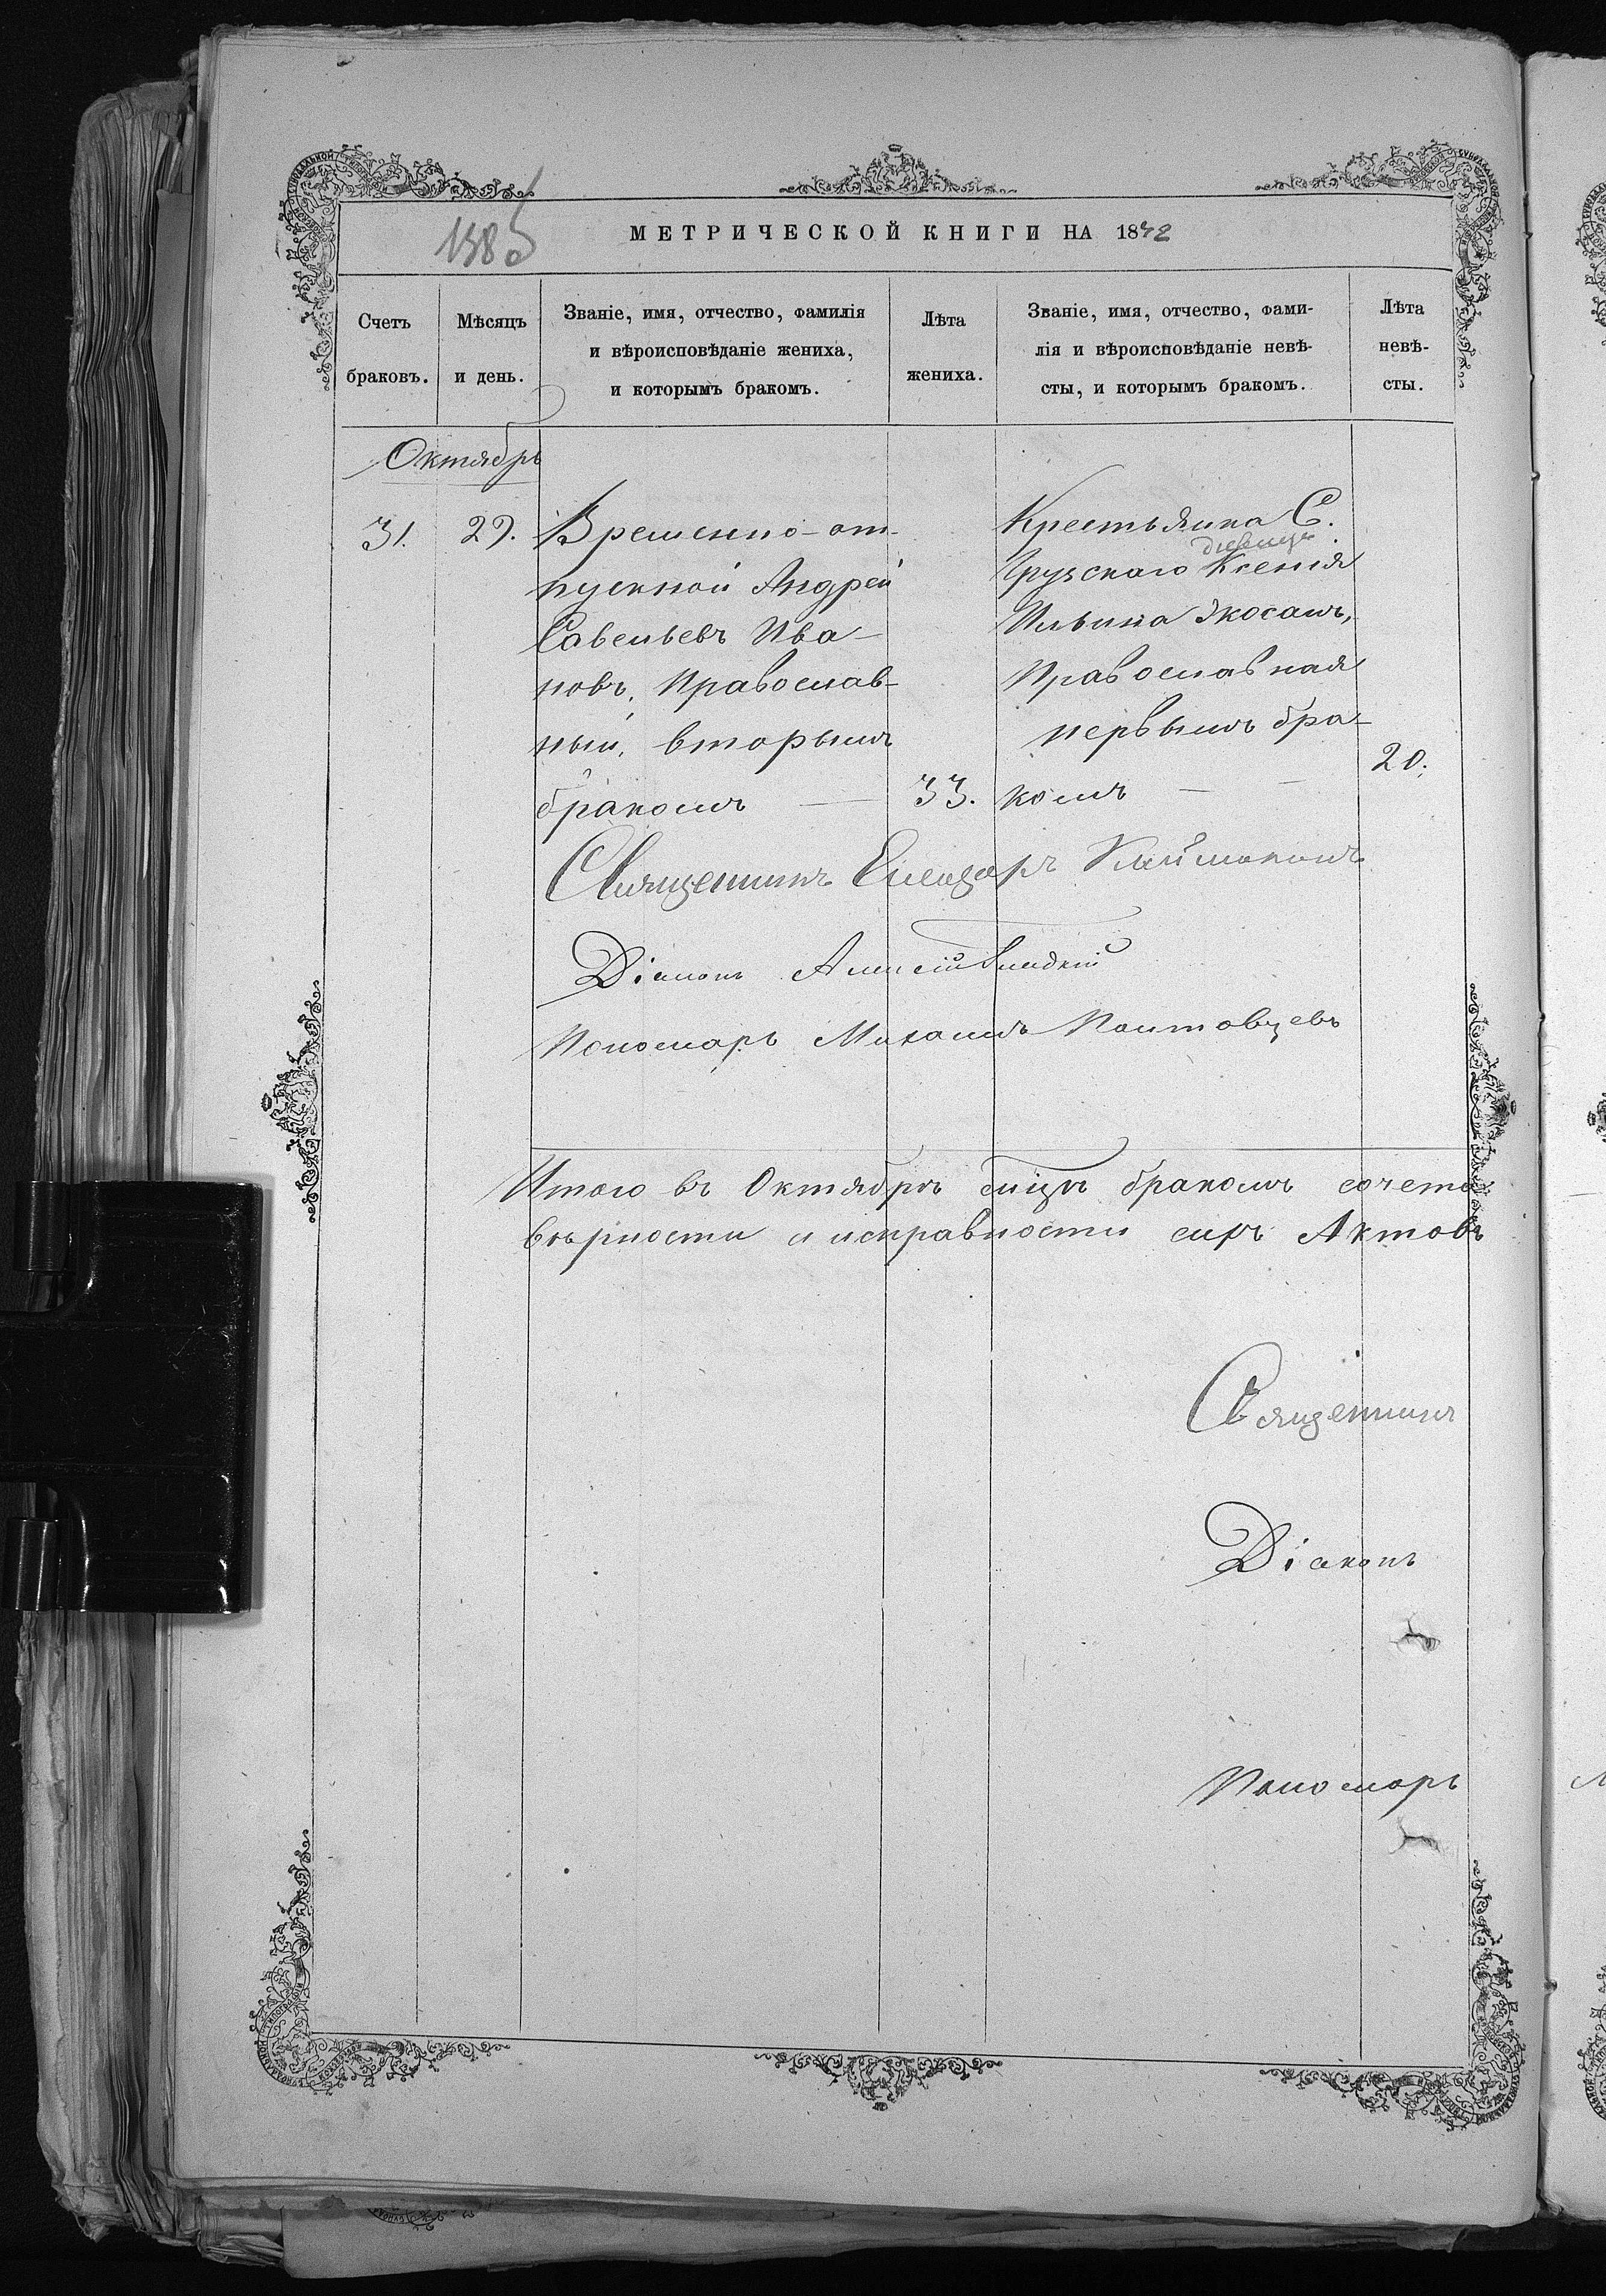 1385
МЕТРИЧЕСКОЙ КНИГИ НА 1842
Счетъ браковъ.
Мѣсяцъ и день.
Званіе, имя, отчество, фамилія
и вѣроисповѣданіе жениха,
и которымъ бракомъ.
Лѣта
жениха.
Званіе, имя, отчество, фами-
лія и вѣроисповѣданіе невѣ-
сты, и которымъ бракомъ.
Лѣта
невѣ-
сты.
Октябрь
31. 29.
Временно-от-
пускной Андрей
Савельевъ Ива-
новъ, Православ-
ный, вторымъ
бракомъ — 33.
Крестьянка С.
девица
Грузскаго Ксенія
Ильина
Православная
первымъ бра-
комъ — 20.
Священникъ Елеазаръ
Діаконъ Алексій
Пономарь Михаилъ Полтовцевъ
Итого въ Октябрѣ бракомъ сочета
вѣрности и исправности сихъ Актовъ
Священникъ
Діаконъ
Пономарь